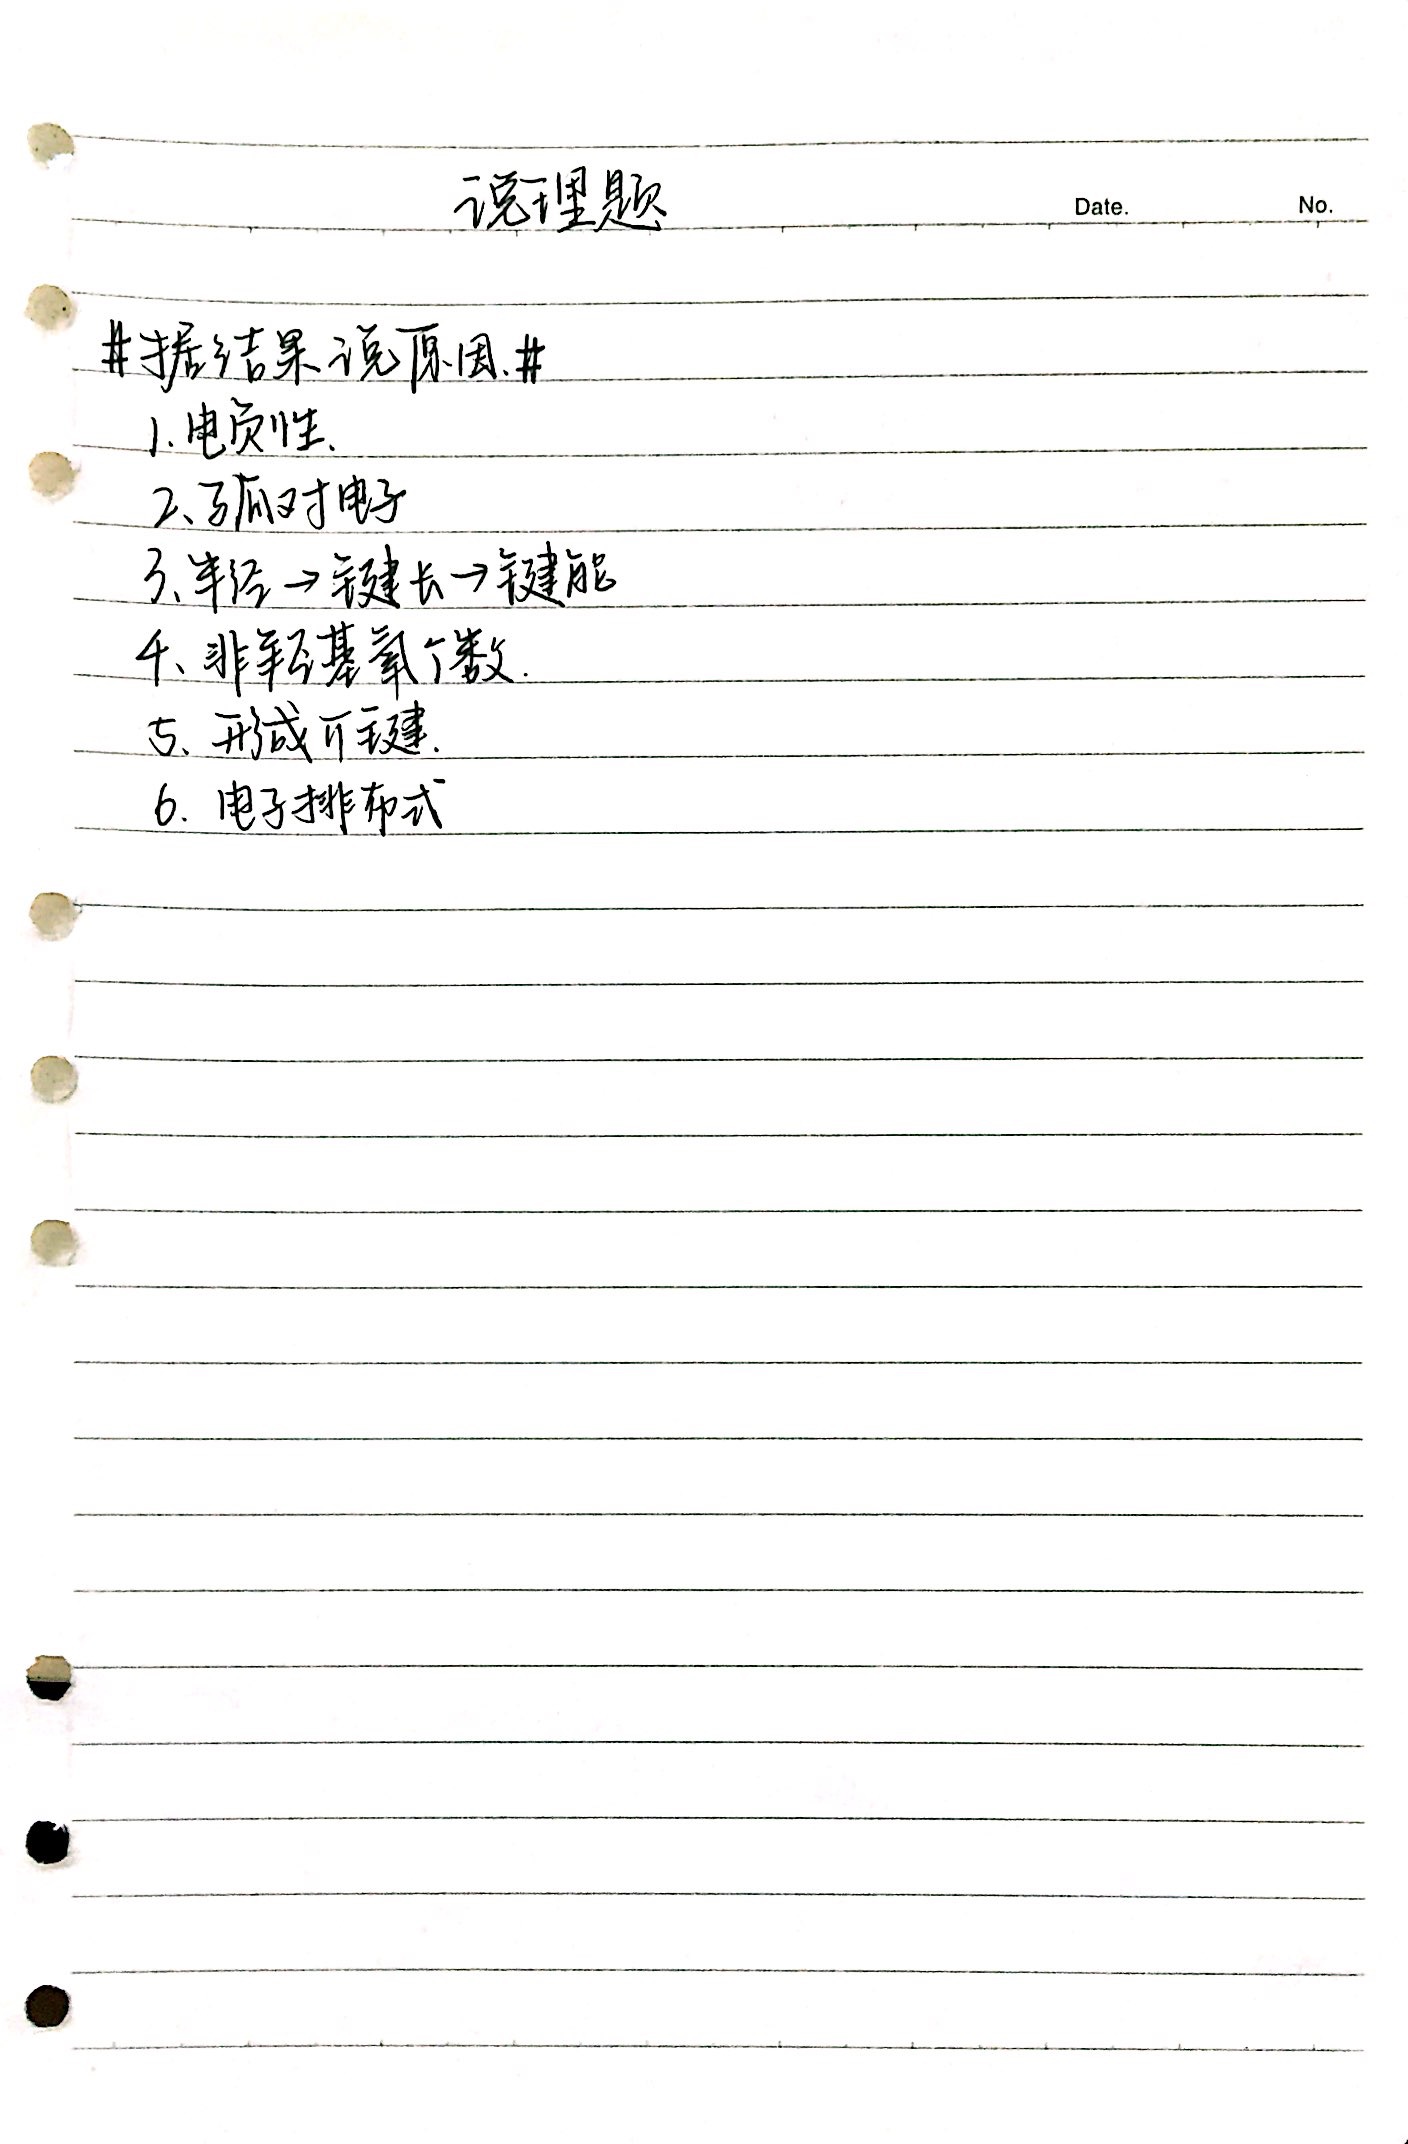 说理题
Date. No.
#据结果说原因.#
1.电负性.
2、孤对电子
3、半径→键长→键能
4、非羟基氧个数.
5、形成π键.
6.电子排布式